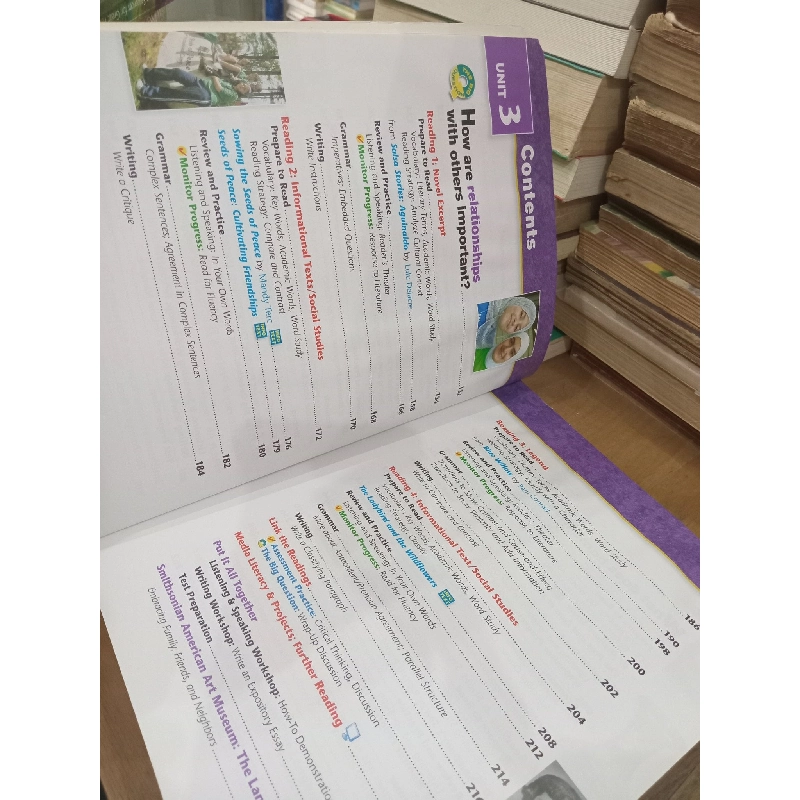 UNIT 3
Contents
THE BIG QUESTION
How are relationships
with others important?
Reading 1: Novel Excerpt
Prepare to Read
Vocabulary: Literary Terms, Academic Words, Word Study
Reading Strategy: Analyze Cultural Context
from Salsa Stories: Aguinaldo by Lulu Delacre 158
Review and Practice 166
Listening and Speaking: Reader's Theater
Monitor Progress: Response to Literature 168
Grammar
Imperatives; Embedded Question 170
Writing
Write Instructions 172
Reading 2: Informational Texts/Social Studies
Prepare to Read 176
Vocabulary: Key Words, Academic Words, Word Study
Reading Strategy: Compare and Contrast 179
Sowing the Seeds of Peace by Mandy Terc
Seeds of Peace: Cultivating Friendships 180
Review and Practice
Listening and Speaking: In Your Own Words 182
Monitor Progress: Read for Fluency
Grammar
Complex Sentences; Agreement in Complex Sentences 184
Writing
Write a Critique
Reading 3: Legend 186
Prepare to Read
190
Review and Practice 198
Monitor Progress: Response to Literature
Grammar 200
Writing 202
Reading 4: Informational Text/Social Studies
Prepare to Read 204
Vocabulary: Key Words, Academic Words, Word Study
Reading Strategy: Classify
The Ladybird and the Wildflowers 208
Review and Practice 212
Listening and Speaking: In Your Own Words
Monitor Progress: Read for Fluency
Grammar 214
More about Antecedent/Pronoun Agreement; Parallel Structure
Writing
Write a Classifying Paragraph
Link the Readings
Assessment Practice: Critical Thinking, Discussion
The Big Question: Wrap-Up Discussion
Media Literacy & Projects; Further Reading
Put It All Together
Listening & Speaking Workshop: How-To Demonstratio
Writing Workshop: Write an Expository Essay
Test Preparation
Smithsonian American Art Museum: The Lan
Embracing Family, Friends, and Neighbors